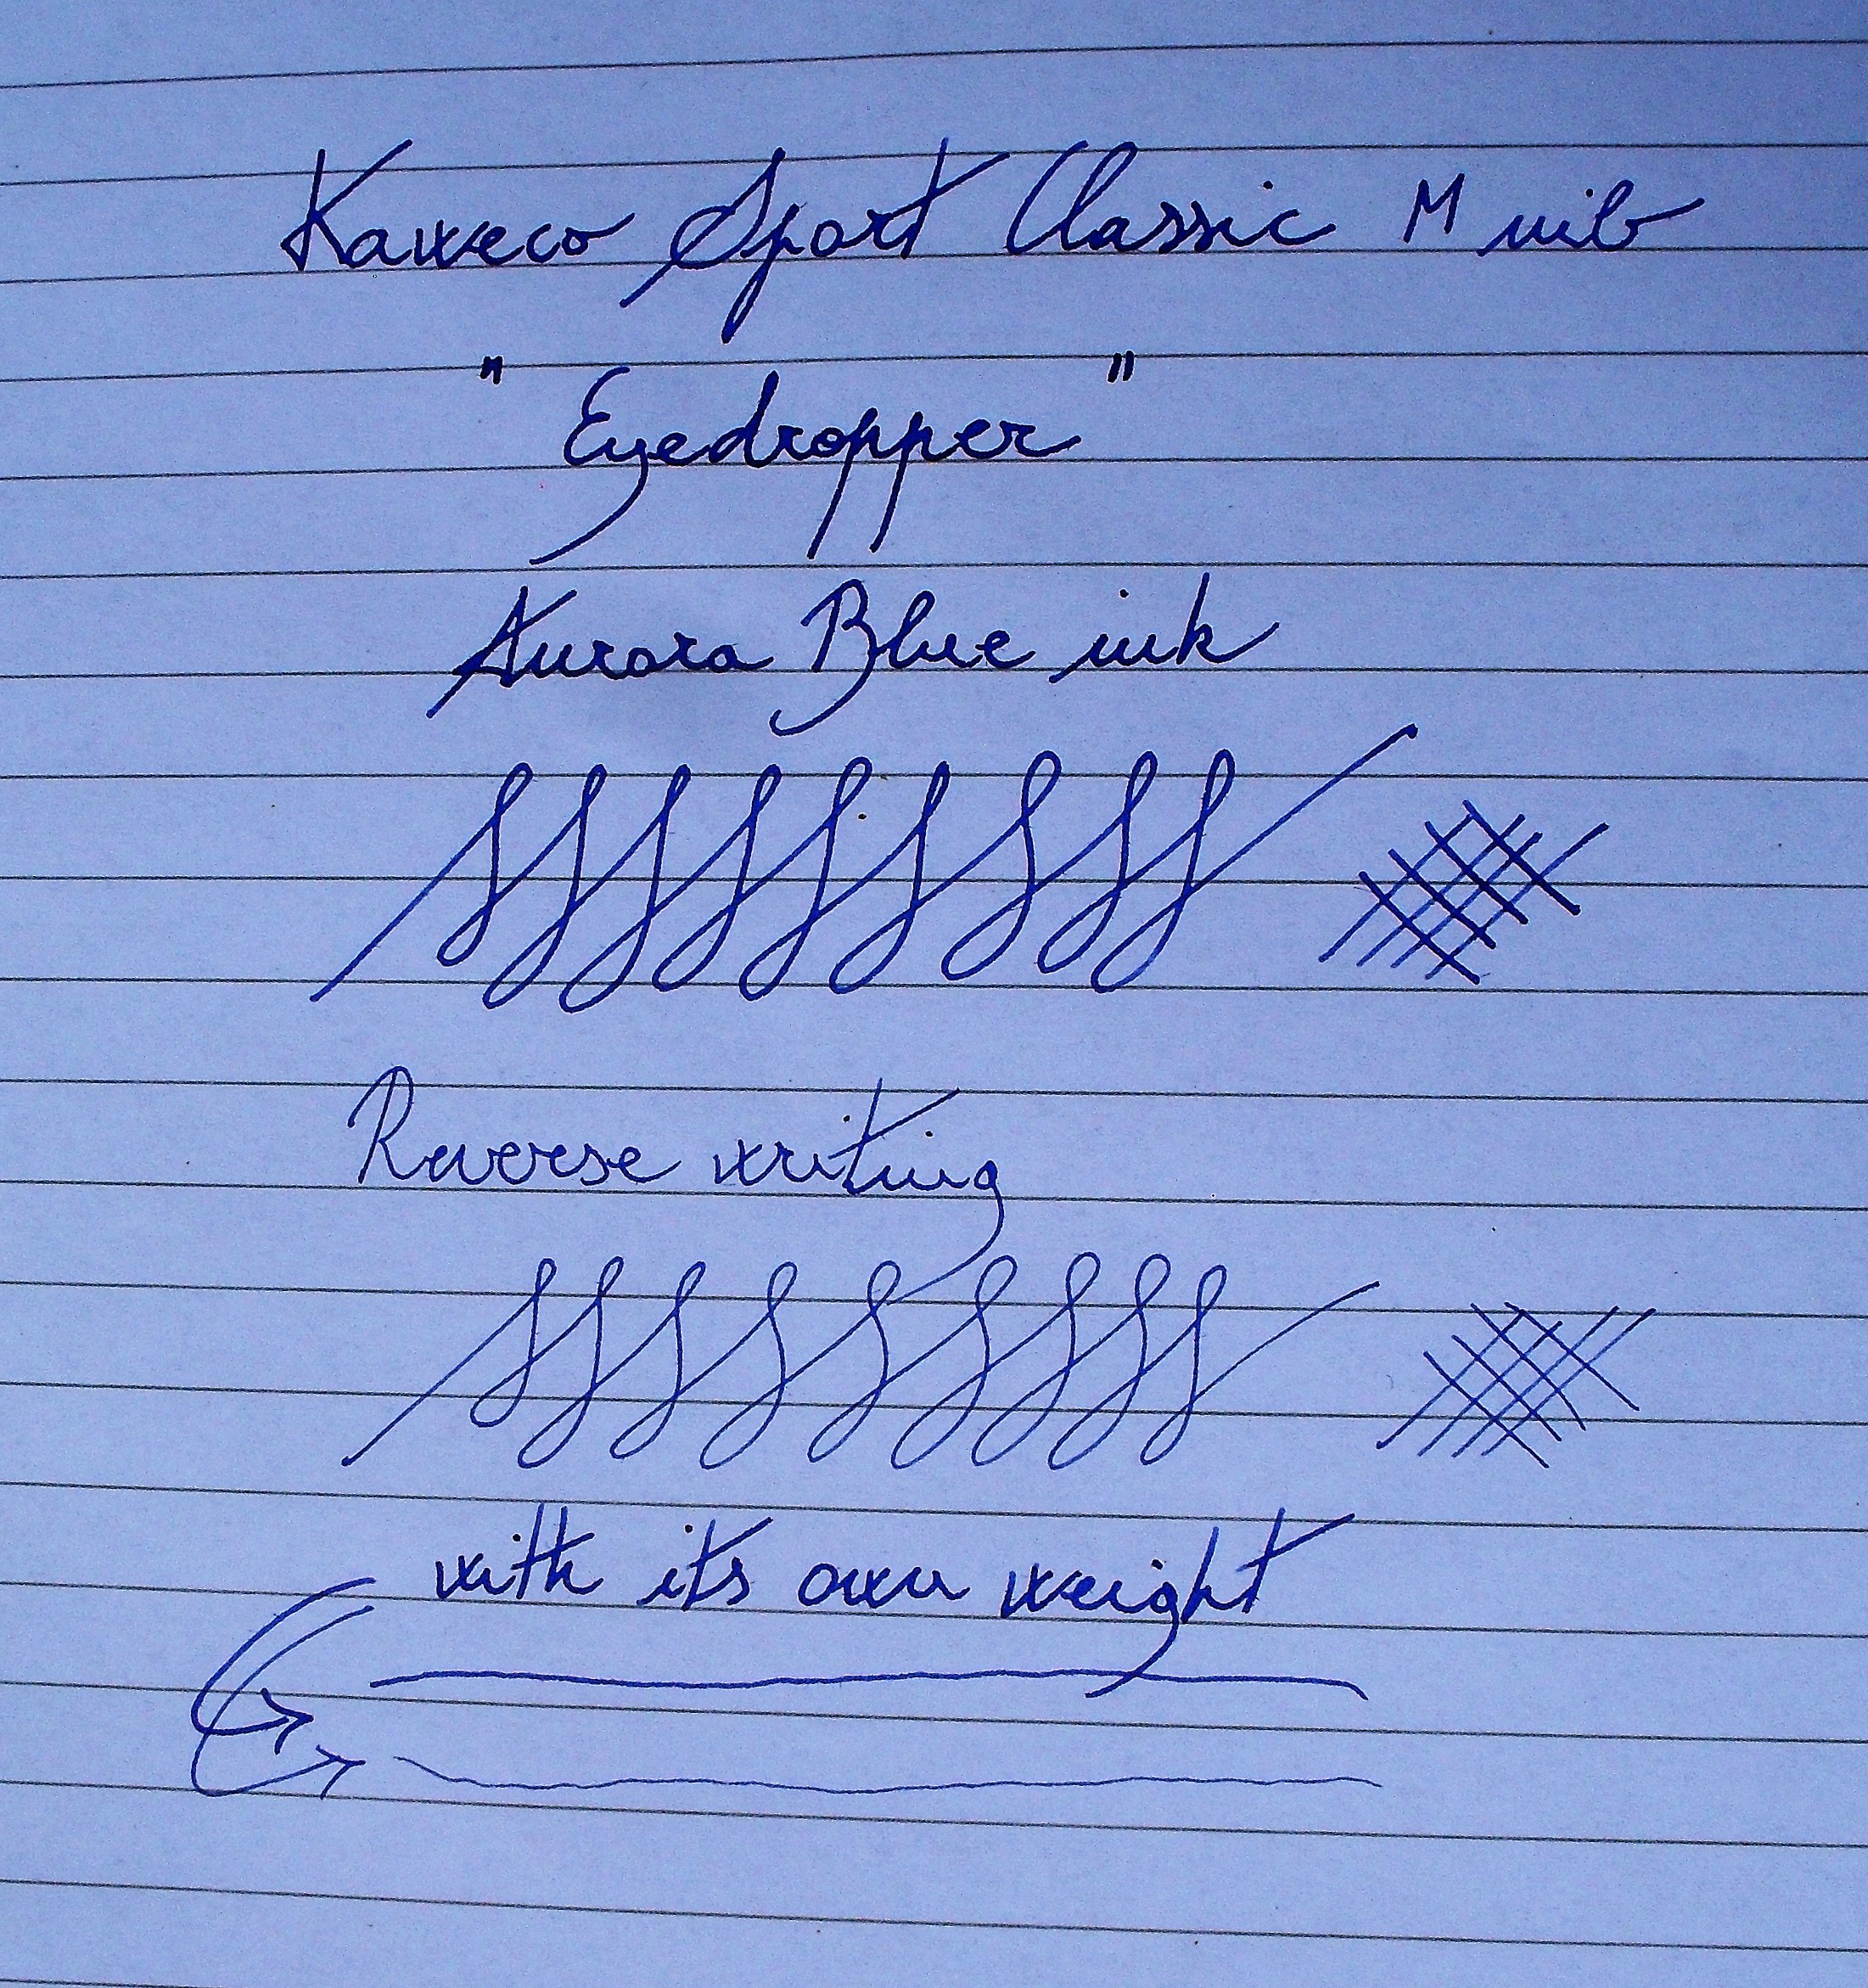 Kaweco Sport Classic M nib
"Eyedropper"
Aurora Blue ink
Reverse writing
with its own weight